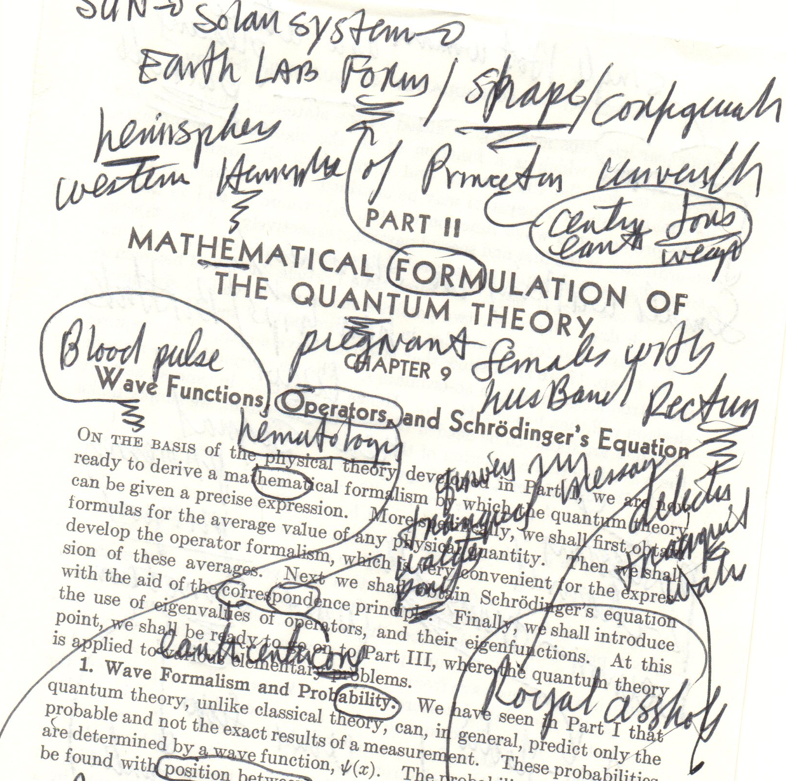 SUN → Solar system →
Earth LAB Form / shape / configurah
hemisphere
western Hemisphe of Princeton Universh
PART II
MATHEMATICAL FORMULATION OF
THE QUANTUM THEORY
Blood pulse
pregnant females with
CHAPTER 9
husBand Rectum
Wave Functions, Operators, and Schrödinger's Equation
hematology
ON THE BASIS of the physical theory developed in Part I, we are now
ready to derive a mathematical formalism by which the quantum theory
can be given a precise expression. More specifically, we shall first obtain
formulas for the average value of any physical quantity. Then we shall
develop the operator formalism, which is very convenient for the expres-
sion of these averages. Next we shall obtain Schrödinger's equation
with the aid of the correspondence principle. Finally, we shall introduce
the use of eigenvalues of operators, and their eigenfunctions. At this
point, we shall be ready to go on to Part III, where the quantum theory
is applied to various elementary problems.
1. Wave Formalism and Probability. We have seen in Part I that
quantum theory, unlike classical theory, can, in general, predict only the
probable and not the exact results of a measurement. These probabilities
are determined by a wave function, ψ(x). The probabi
be found with position between
Royal asshole